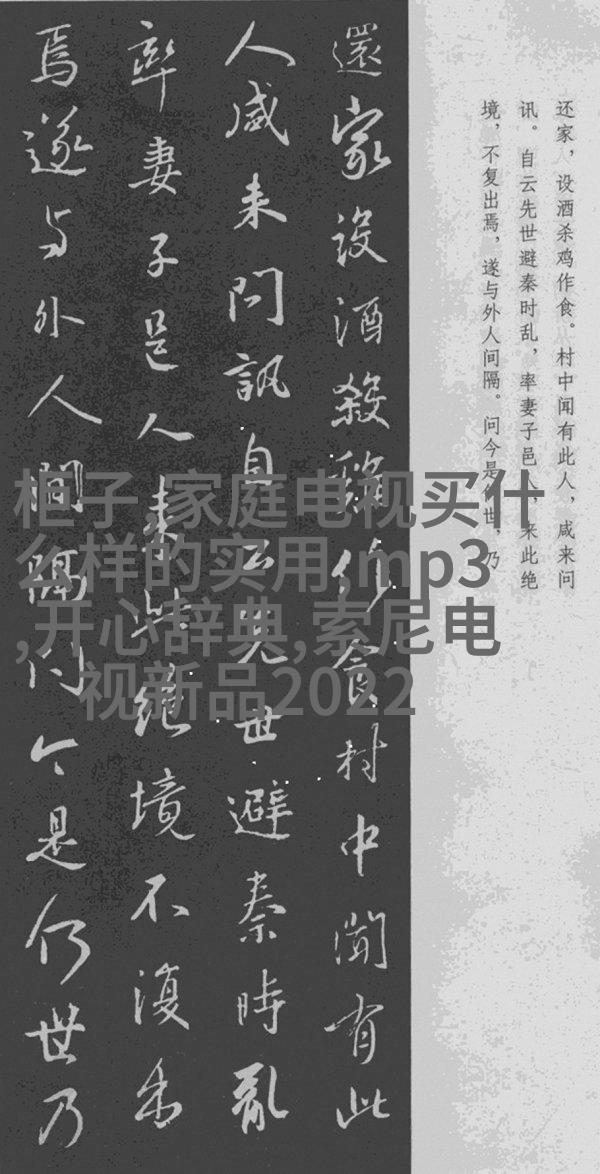 还家，设酒杀鸡作食。村中闻有此人，咸来问
讯。自云先世避秦时乱，率妻子邑人，来此绝
境，不复出焉，遂与外人间隔。问今是何世，乃
還家設酒殺雞作食村中聞有此
人咸来問訊自云先世避秦時亂
率妻子邑人来此絶境不復出
焉遂与外人間隔问今是何世乃
柜子 家庭电视买什
么样的实用,mp3
,开心辞典,索尼电
视新品2022